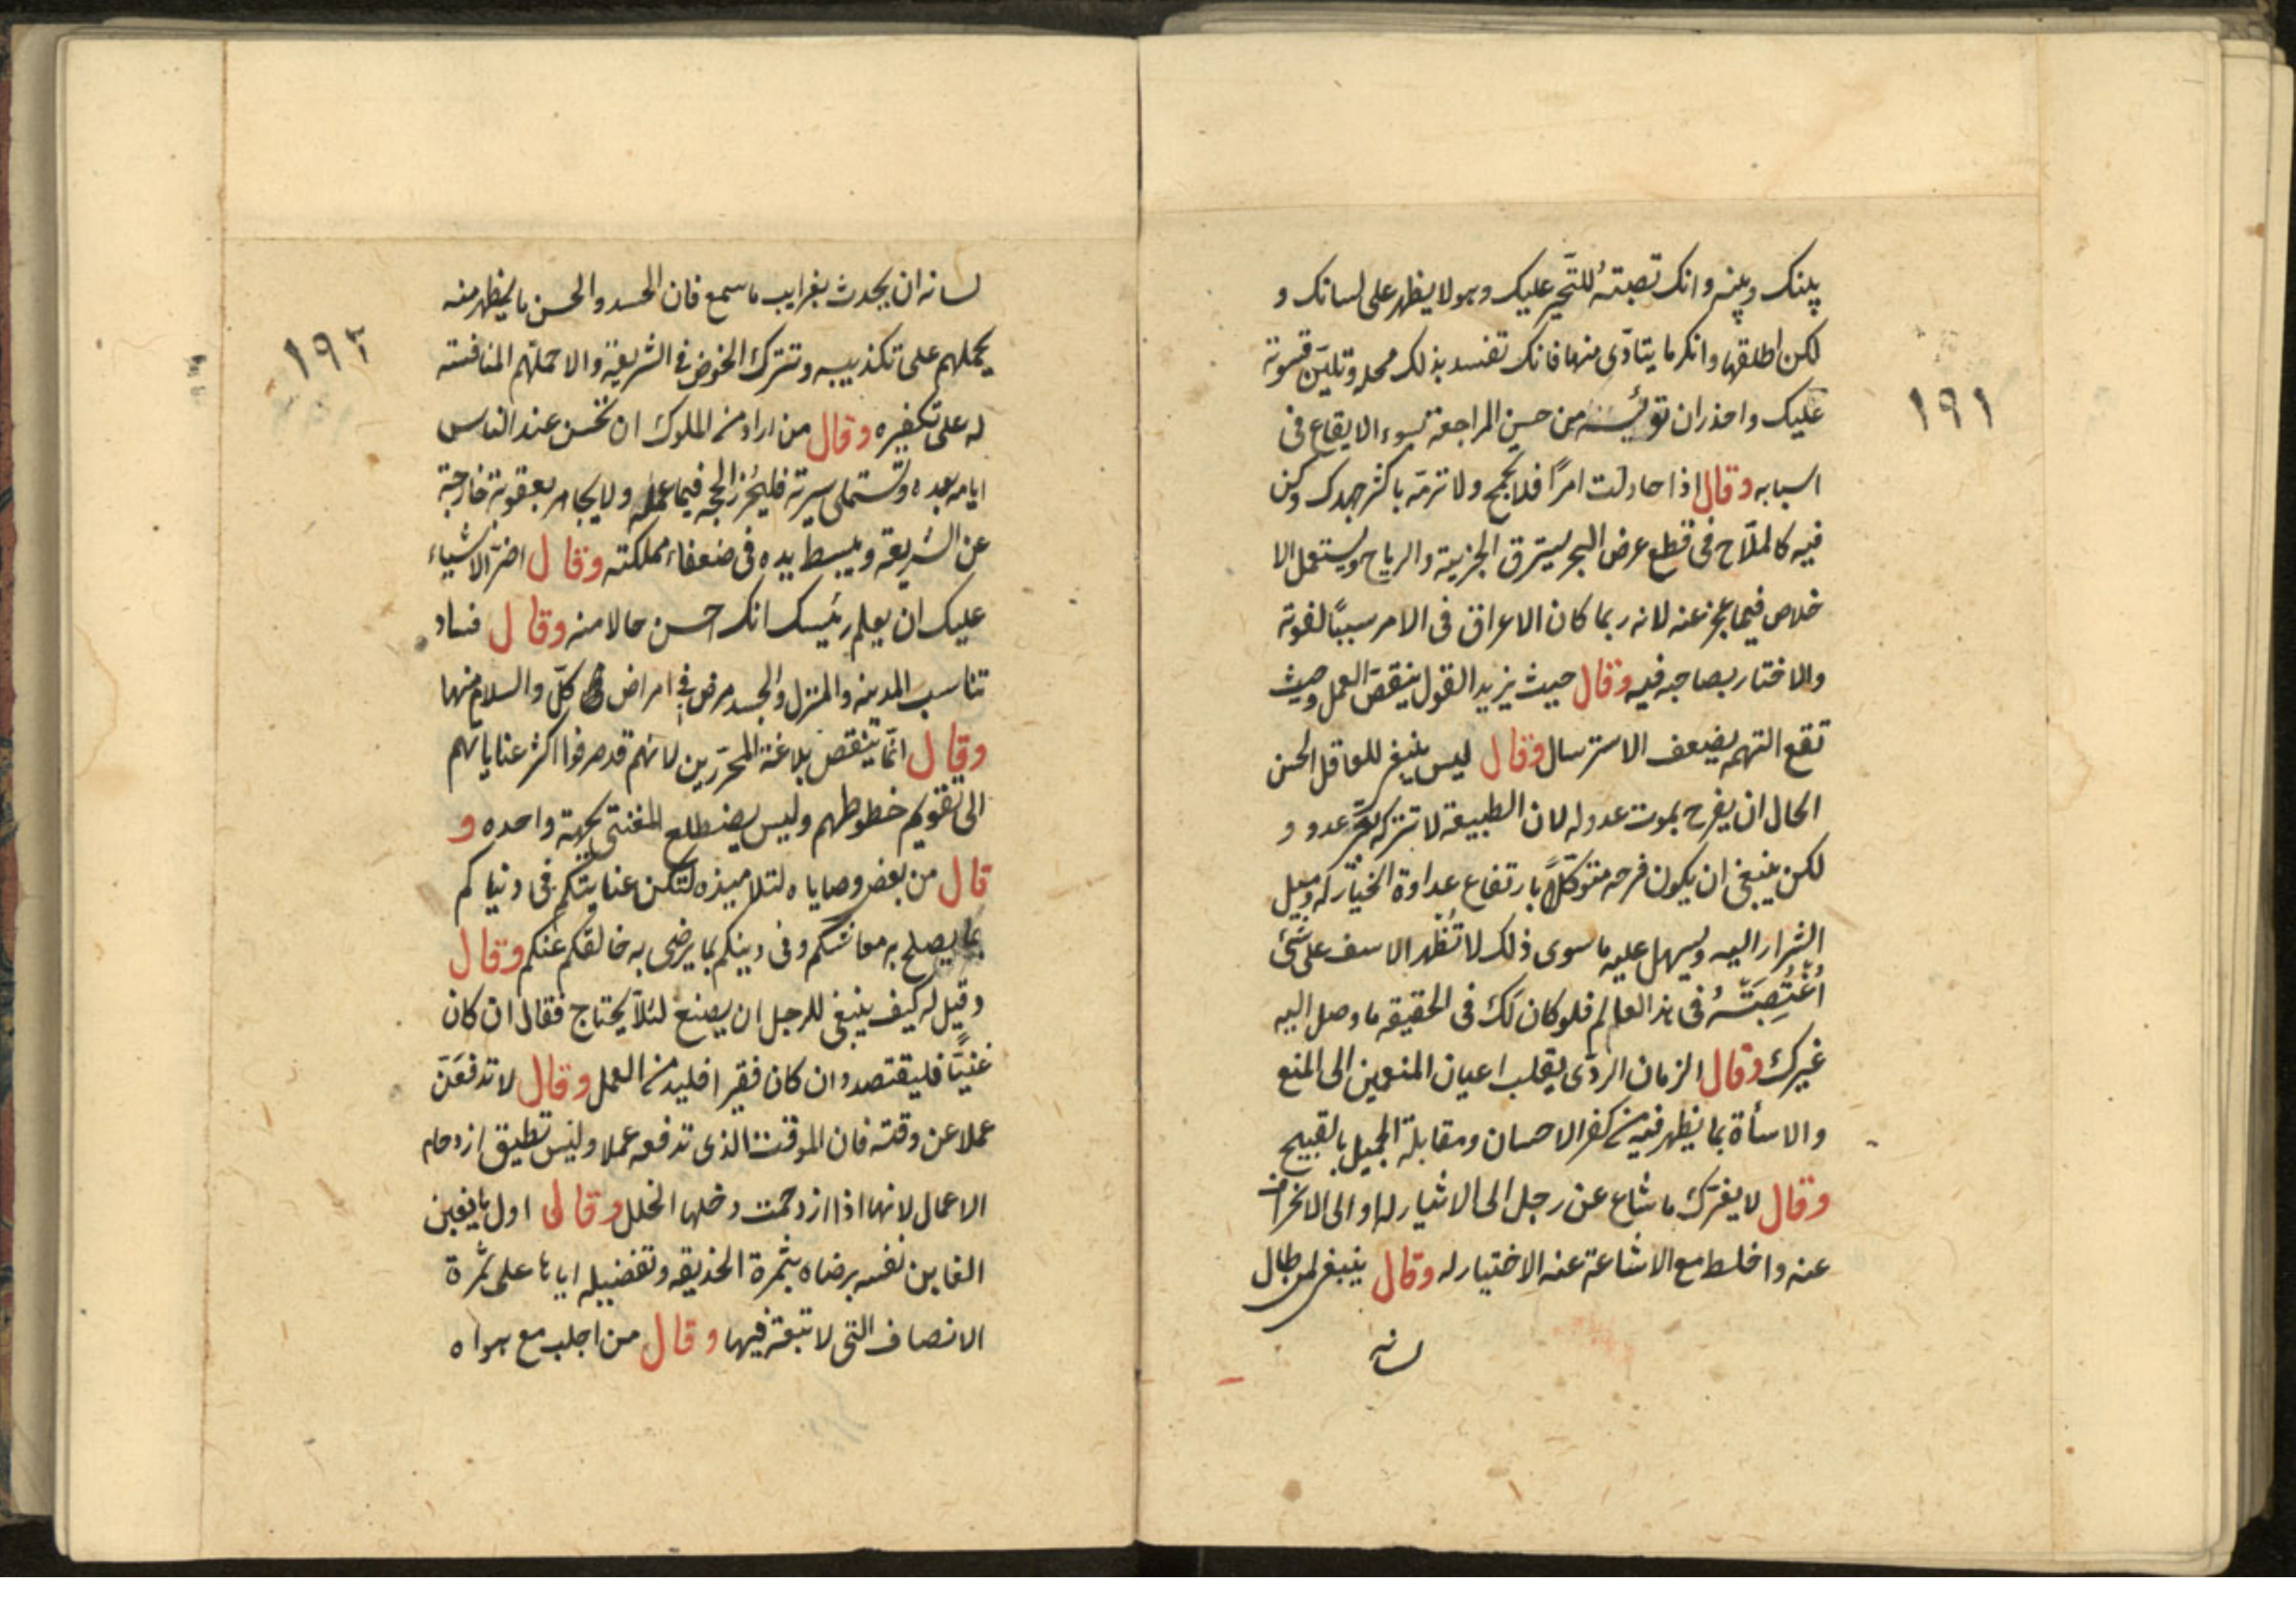 بينك وبينه وانك تصبته للتحير عليك وهو لا يظهر على لسانك و
لكن اطلقها وانكر ما يتأدى منها فانك تفسد بذلك محله وتلين قسوته
عليك واحذر ان تؤيسه من حسن المراجعة بسوء الايقاع فى
اسبابه وقال اذا حاولت امرًا فلا تجمح ولا ترمه باكثر جهدك وكن
فيه كالملاّح فى قطع عرض البحر يسترق الجزيئة والرياح ويستعمل الا
خلاص فيما عجز عنه لانه ربما كان الاعراق فى الامر سببًا لفوته
والاختار بصاحبه فيه وقال حيث يزيد القول ينقص العمل وحيث
تقع التهمه يضعف الاسترسال وقال ليس ينبغى للعاقل الحسن
الحال ان يفرح بموت عدو له لان الطبيعة لا تتركه بغير عدو و
لكن ينبغى ان يكون فرحه متوكلاً بارتفاع عداوة الخيار له وميل
الشرار اليه ويسهل عليه ما سوى ذلك لا تُظهر الاسف على شئ
اُغتُصِبتَهُ فى هذا العالم فلو كان لك فى الحقيقه ما وصل اليه
غيرك وقال الزمان الردّى يقلب اعيان المنعمين الى المنع
والاسأة بما يظهر فيه من كفر الاحسان ومقابلة الجميل بالقبيح
وقال لا يغرّك ما شاع عن رجل الى الاثيار له او الى الانحراف
عنه واخلط مع الاشاعة عنه الاختيار له وقال ينبغى لمن طال
لسانه
١٩١
لسانه ان يحدث بغرايب ما سمع فان الحسد والحسن ما يظهر منه
يحملهم على تكذيبه وتترك الخوض فى الشريعة والا حملتهم المنافسته
له على تكفيره وقال من اراد من الملوك ان تحسن عند الناس
ايامه بعده وتستملى سيرته فليحرز الحجه فيما عمله ولا يجاهر بعقوبة خارجة
عن الشريعة ويبسط يده فى ضعفاء مملكته وقال اضرّ الاشياء
عليك ان يعلم رئيسك انك احسن حالا منه وقال فساد
تناسب المدينه والمنزل والجسد مرض فى امراض كلّ والسلام منها
وقال انّما ينقص بلاغة المحرّرين لانهم قد صرفوا اكثر عناياتهم
الى تقويم خطوطهم وليس يضطلع المغنتى بجهة واحده و
قال من بعض وصاياه لتلاميذه لتكن عنايتكم فى دنياكم
بما يصلح به معاشكم وفى دينكم بما يرضى به خالقكم عنكم وقال
وقيل له كيف ينبغى للرجل ان يصنع لئلاّ يحتاج فقال ان كان
غنيًّا فليقتصد وان كان فقيرا فليدمن العمل وقال لا تدفعن
عملا عن وقته فان للوقت الذى تدفعه عملا وليس تطيق ازدحام
الاعمال لانها اذا ازدحمت دخلها الخلل وقال اول ما يغبن
الغابن نفسه برضاه بثمرة الخديقه وتفضيله اياها على ثمرة
الانصاف التى لا تبعة فيها وقال من اجلب مع هواه
١٩٢